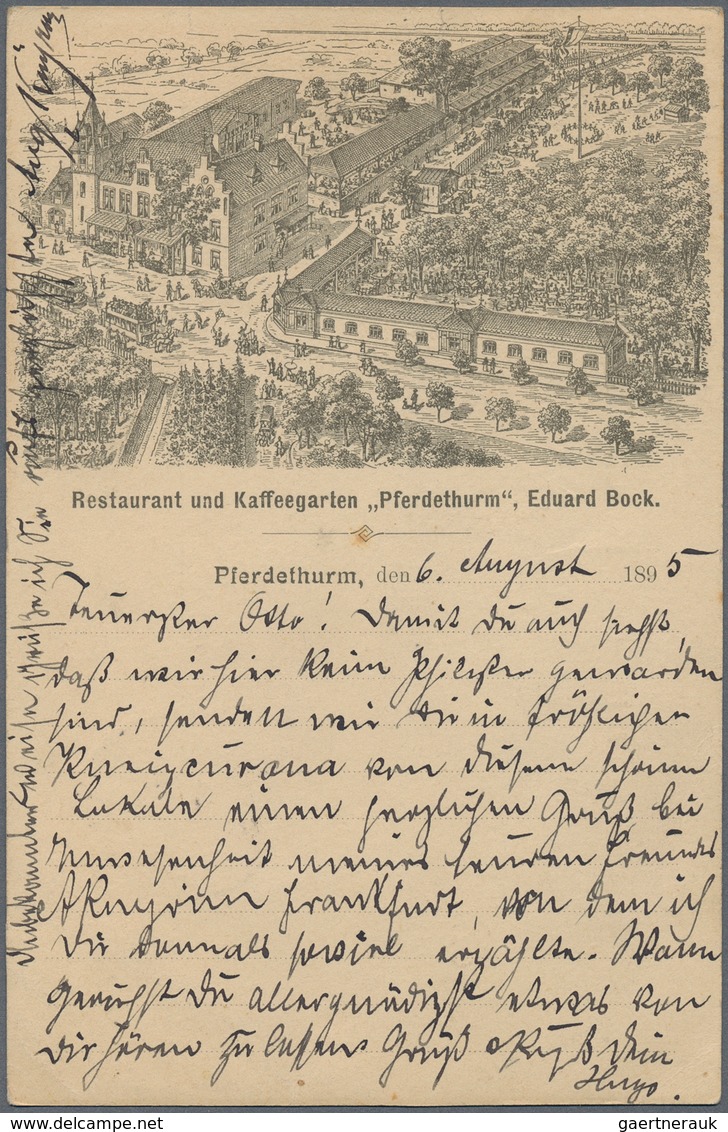 Restaurant und Kaffeegarten „Pferdethurm“, Eduard Bock.
Pferdethurm, den 6. August 1895
Teuerster Otto! Damit du auch siehst,
daß wir hier keine Philister geworden
sind, senden wir dir in fröhlicher
Kneipcorona von diesem schönen
Lokale einen herzlichen Gruß, bei
Anwesenheit meines teuren Freundes
aus Frankfurt, von dem ich
dir damals soviel erzählte. Wann
Geruhst Du allergnädigst etwas von
dir hören zu lassen. Gruß & Kuß Dein
Hugo.
Unbekannterweise grüße ich Sie
gaertnerauk @ delcampe.net